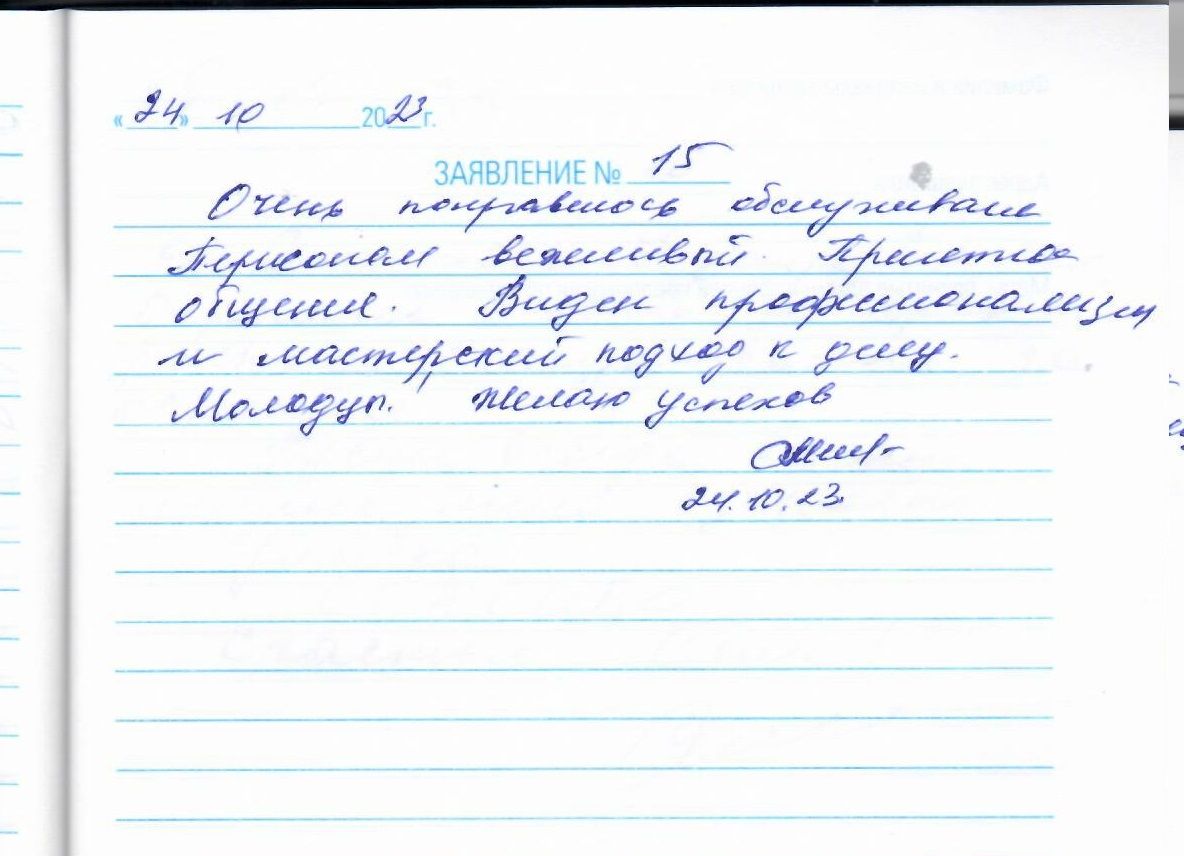 «24» 10 2023 г.
ЗАЯВЛЕНИЕ № 15
Очень понравилось обслуживание
Персонал вежливый. Приятное
общение. Виден профессионализм
и мастерский подход к делу.
Молодцы! Желаю успехов
24.10.23.